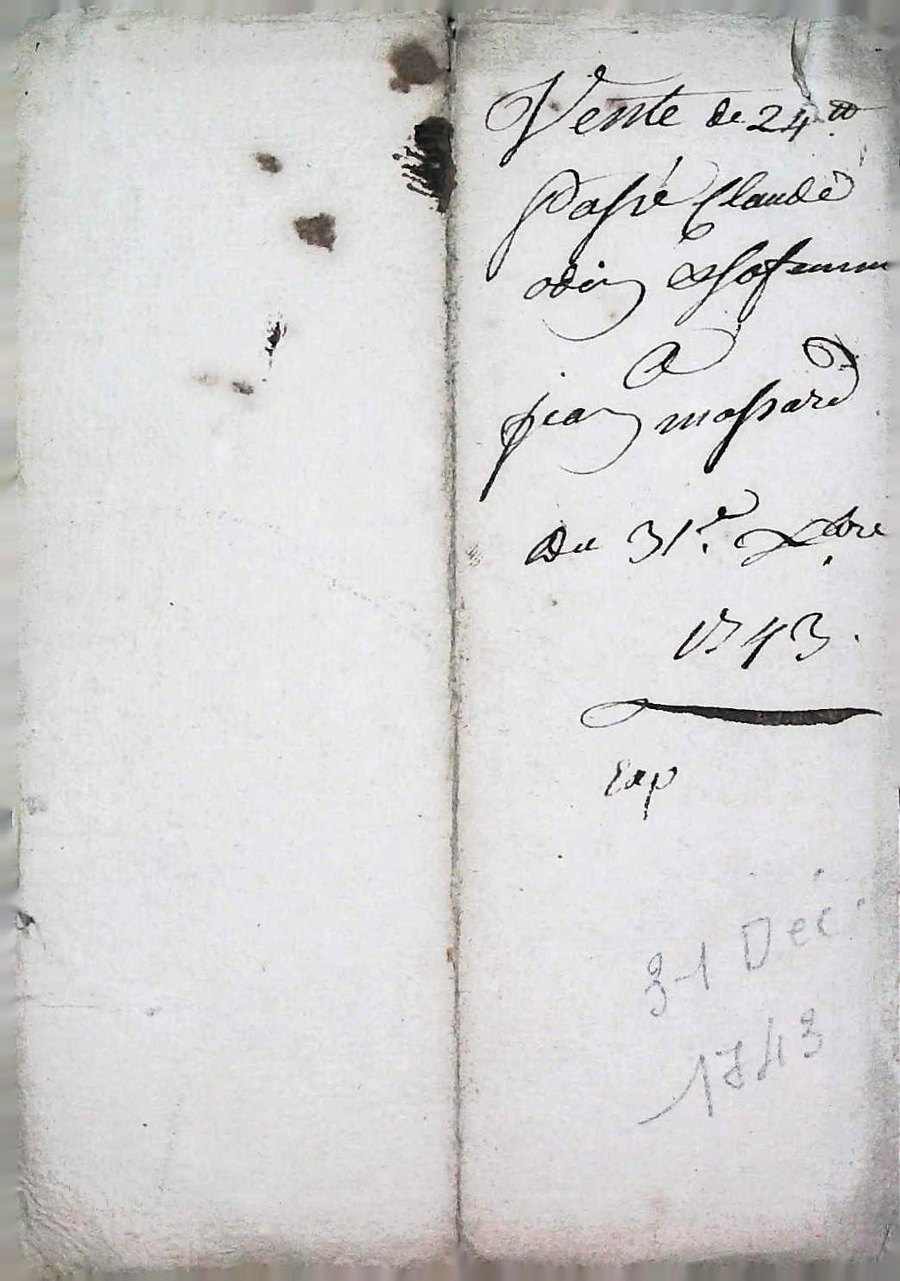 Vente de 24 ₶
Passé Claude
odin & sa femme
A
jean massard
Du 31.e xbre
1743.
Exp
31 Déc.
1743